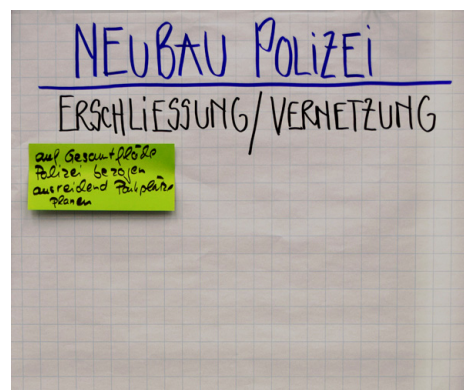 NEUBAU POLIZEI
ERSCHLIESSUNG/VERNETZUNG
auf Gesamtfläche
Polizei bezogen
ausreichend Parkplätze
planen